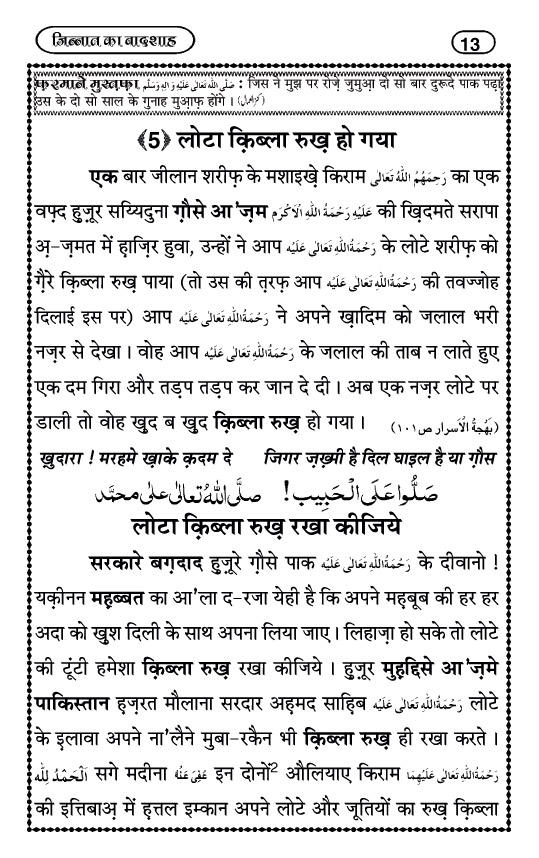 जिन्नात का बादशाह
13
फ़रमाने मुस्त़फ़ा صَلَّى اللهُ تَعَالٰى عَلَيْهِ وَاٰلِهٖ وَسَلَّم : जिस ने मुझ पर रोज़े जुमुआ़ दो सो बार दुरूदे पाक पढ़ा
उस के दो सो साल के गुनाह मुआ़फ़ होंगे । (کنزالعمال)
﴾5﴿ लोटा क़िब्ला रुख़ हो गया
एक बार जीलान शरीफ़ के मशाइखे़ किराम رَحِمَهُمُ اللّٰهُ تَعَالٰى का एक
वफ़्द हुज़ूर सय्यिदुना ग़ौसे आ'ज़म عَلَيْهِ رَحْمَةُ اللّٰهِ الْاَكْرَم की ख़िदमते सरापा
अ़-ज़मत में हाज़िर हुवा, उन्हों ने आप رَحْمَةُاللّٰهِ تَعَالٰى عَلَيْه के लोटे शरीफ़ को
ग़ैरे क़िब्ला रुख़ पाया (तो उस की त़रफ़ आप رَحْمَةُاللّٰهِ تَعَالٰى عَلَيْه की तवज्जोह
दिलाई इस पर) आप رَحْمَةُاللّٰهِ تَعَالٰى عَلَيْه ने अपने ख़ादिम को जलाल भरी
नज़र से देखा । वोह आप رَحْمَةُاللّٰهِ تَعَالٰى عَلَيْه के जलाल की ताब न लाते हुए
एक दम गिरा और तड़प तड़प कर जान दे दी । अब एक नज़र लोटे पर
डाली तो वोह खुद ब खुद क़िब्ला रुख़ हो गया । (بَهْجةُ الْاَسرار ص١٠١)
ख़ुदारा ! मरहमे ख़ाके क़दम दे जिगर ज़ख़्मी है दिल घाइल है या ग़ौस
صَلُّوْا عَلَى الْحَبِيْب! صلَّى اللهُ تعالٰى على محمَّد
लोटा क़िब्ला रुख़ रखा कीजिये
सरकारे बग़दाद हुज़ूरे ग़ौसे पाक رَحْمَةُاللّٰهِ تَعَالٰى عَلَيْه के दीवानो !
यक़ीनन महब्बत का आ'ला द-रजा येही है कि अपने महबूब की हर हर
अदा को खुश दिली के साथ अपना लिया जाए । लिहाज़ा हो सके तो लोटे
की टूंटी हमेशा क़िब्ला रुख़ रखा कीजिये । हुज़ूर मुह़द्दिसे आ'ज़मे
पाकिस्तान हज़रत मौलाना सरदार अहमद साहिब رَحْمَةُاللّٰهِ تَعَالٰى عَلَيْه लोटे
के इ़लावा अपने ना'लैने मुबा-रकैन भी क़िब्ला रुख़ ही रखा करते ।
اَلْحَمْدُ لِلّٰه सगे मदीना عُفِىَ عَنْهُ इन दोनों2 औलियाए किराम رَحْمَةُاللّٰهِ تَعَالٰى عَلَيْهِمَا
की इत्तिबाअ़ में हत्तल इम्कान अपने लोटे और जूतियों का रुख़ क़िब्ला